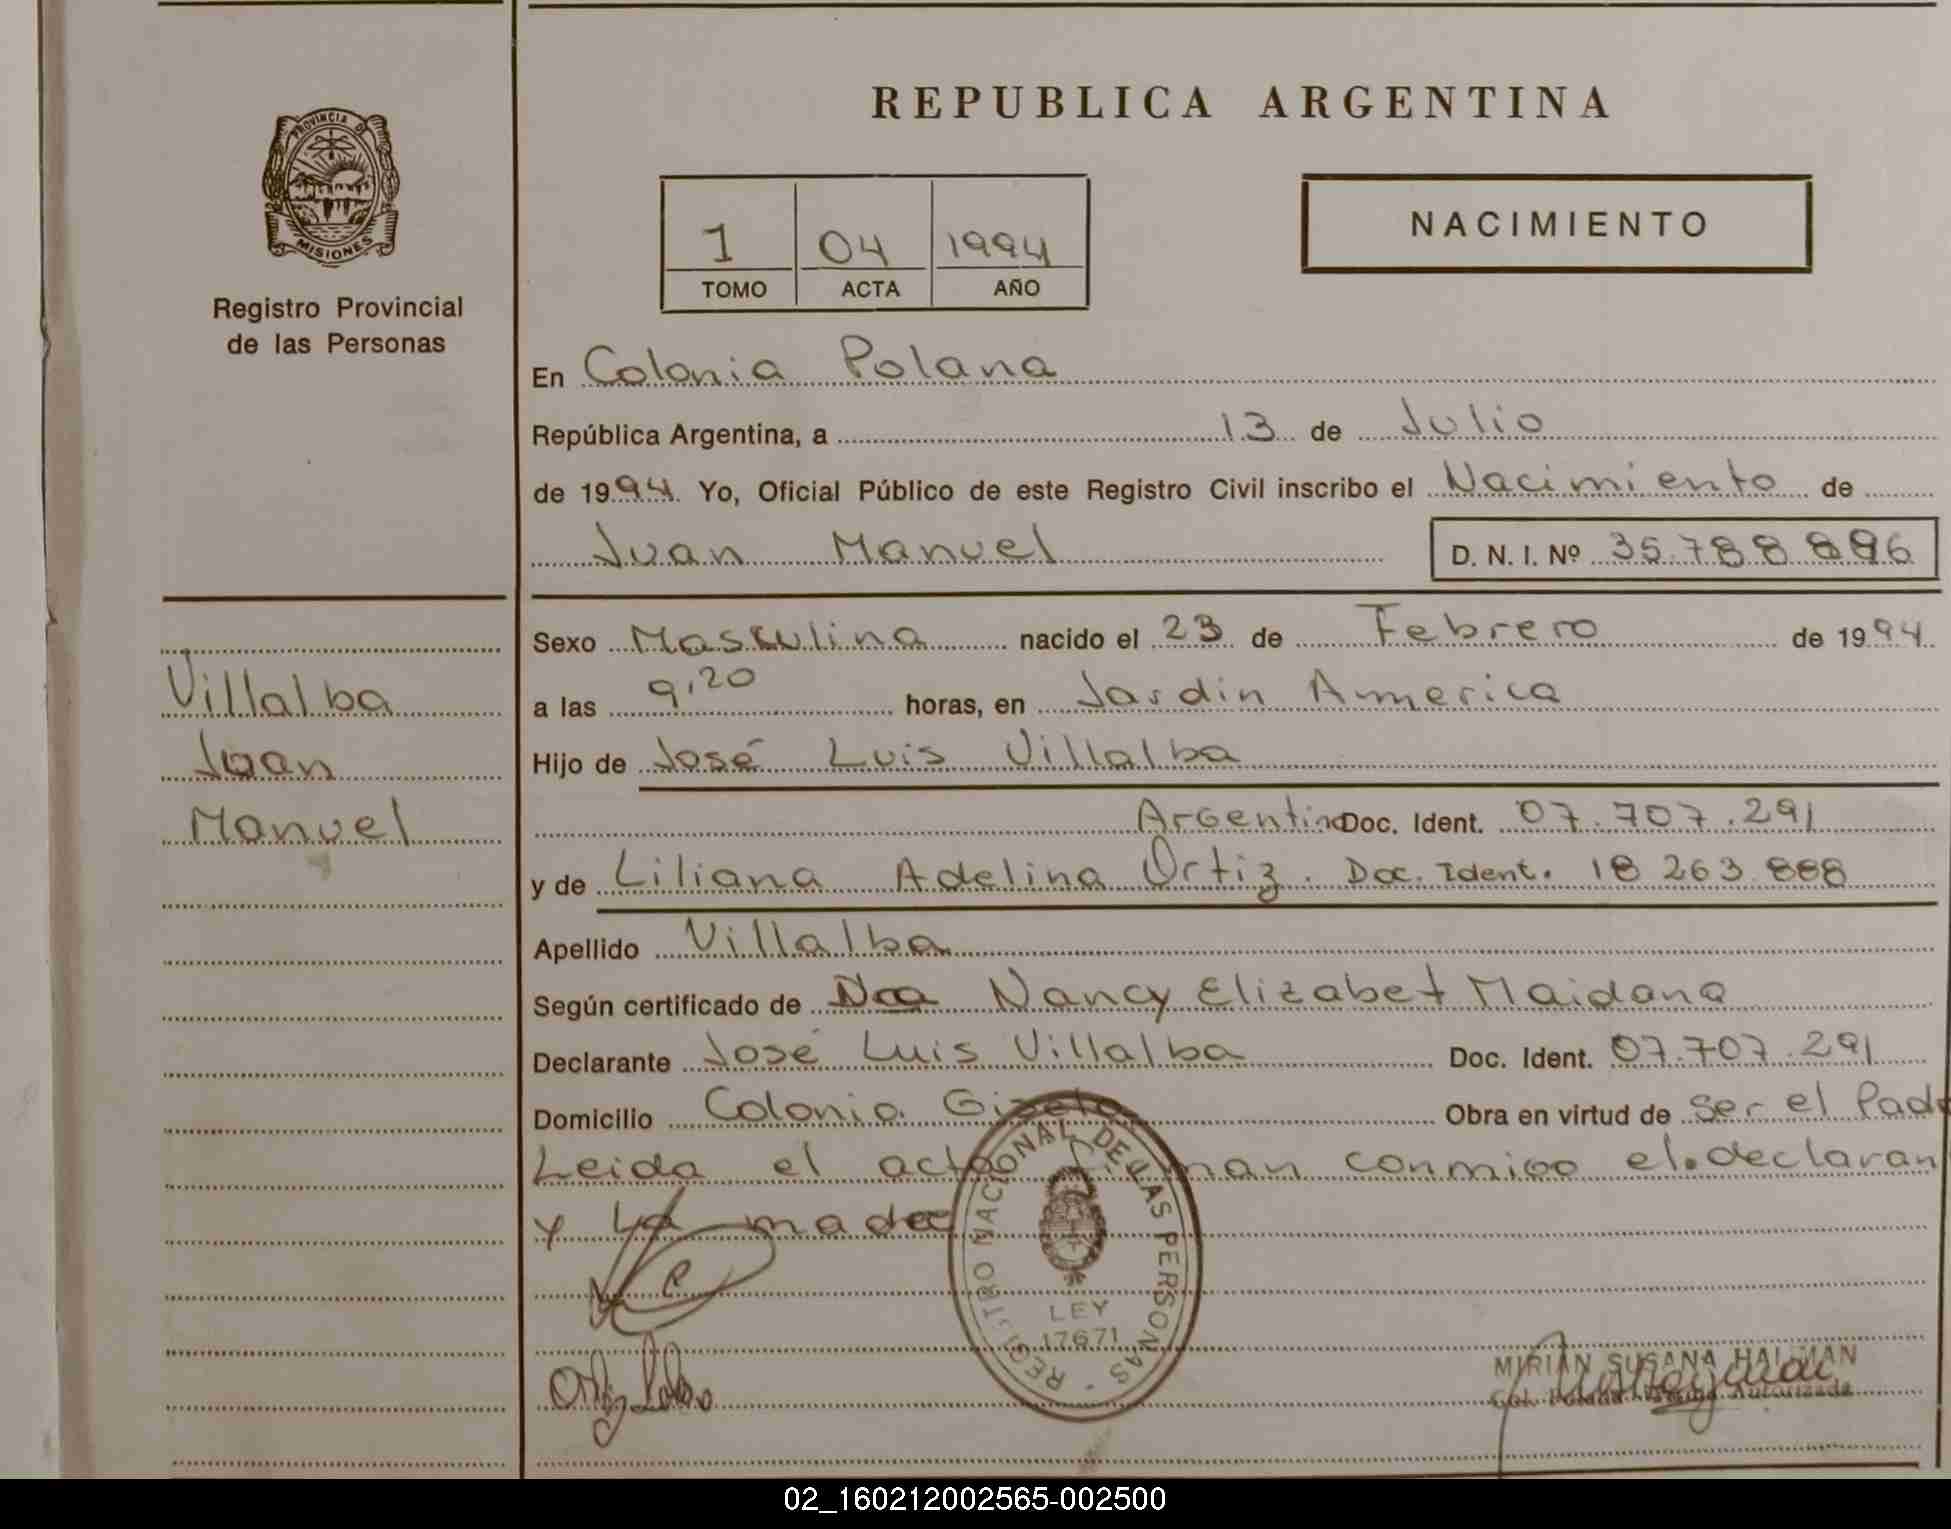 REPUBLICA ARGENTINA
PROVINCIA DE
MISIONES
Registro Provincial
de las Personas
1 04 1994
TOMO ACTA AÑO
NACIMIENTO
En Colonia Polana
República Argentina, a 13 de Julio
de 1994 Yo, Oficial Público de este Registro Civil inscribo el Nacimiento de
Juan Manuel D. N. I. Nº 35.788.896
Villalba
Juan
Manuel
Sexo Masculino nacido el 23 de Febrero de 1994
a las 9,20 horas, en Jardin America
Hijo de José Luis Villalba
Argentino Doc. Ident. 07.707.291
y de Liliana Adelina Ortiz. Doc. Ident. 18 263 888
Apellido Villalba
Según certificado de Nancy Elizabet Maidana
Declarante José Luis Villalba Doc. Ident. 07.707.291
Domicilio Colonia Gisela Obra en virtud de ser el Padr
Leida el acta Firman conmigo el declaran
y la madre
REGISTRO NACIONAL DE LAS PERSONAS
LEY
17671
MIRIAN SUSANA HALLMAN
02_160212002565-002500